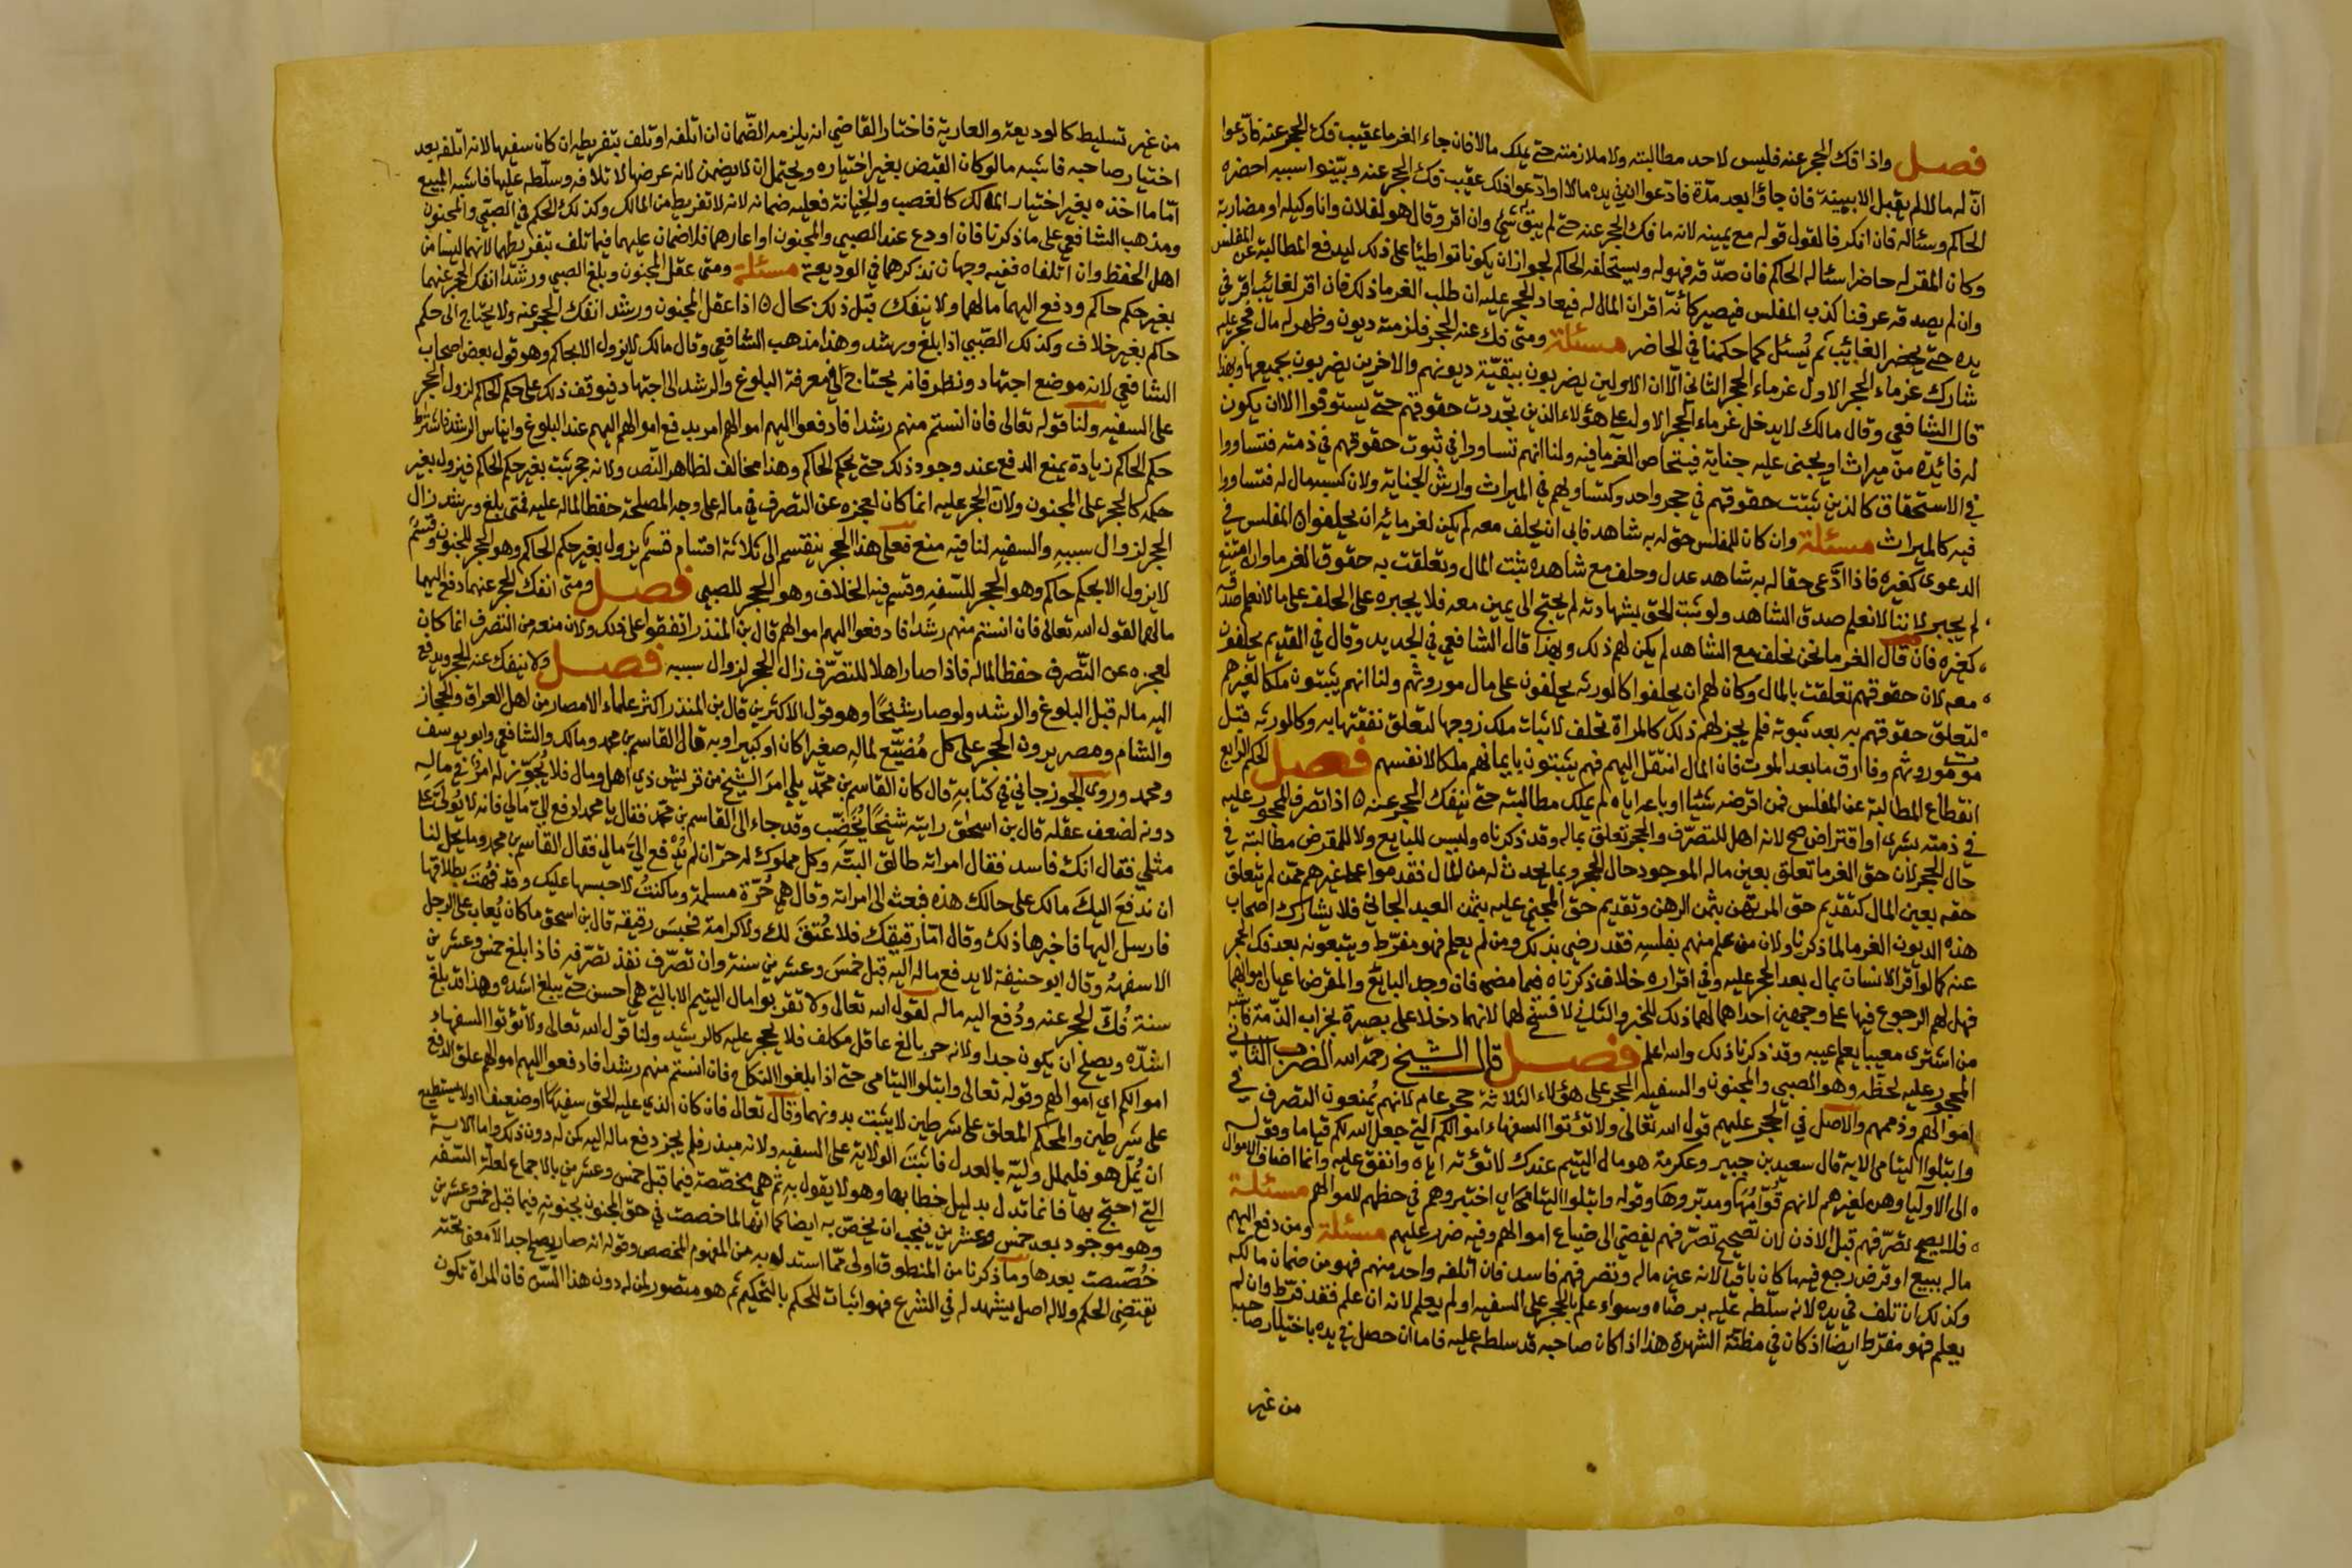 فصل واذا فك الحجر عنه فليس لاحد مطالبته ولا ملازمته حتى يملك مالا فان جاء الغرما عقيب فك الحجر عنه فادعوا
ان له مالا لم يقبل الا ببينة فان جاؤا بعد مدة فادعوا ان في يده مالا او ادعوا ذلك عقيب فك الحجر عنه وبينوا سببه احضره
الحاكم وسئاله فان انكر فالقول قوله مع يمينه لانه ما فك الحجر عنه حتى لم يبق شئ وان اقر وقال هو لفلان وانا وكيله او مضاربه
وكان المقر له حاضرا سئاله الحاكم فان صدقه فهو له ويستحلفه الحاكم لجواز ان يكونا تواطئا على ذلك ليدفع المطالبة عن المفلس
وان لم يصدقه عرفنا كذب المفلس فيصير كأنه اقر ان المال له فيعاد الحجر عليه ان طلب الغرما ذلك فان اقر لغائب اقر في
يده حتى يحضر الغائب ثم يسئل كما حكمنا في الحاضر مسئلة ومتى فك عنه الحجر فلزمته ديون وظهر له مال فحجر عليه
شارك غرماء الحجر الاول غرماء الحجر الثاني الا ان الاولين يضربون ببقية ديونهم والاخرين يضربون بجميعها وبهذا
قال الشافعي وقال مالك لا يدخل غرماء الحجر الاول على هؤلاء الذين تجددت حقوقهم حتى يستوفوا الا ان يكون
له فائدة من ميراث او يجنى عليه جناية فيتحاص الغرما فيه ولنا انهم تساووا في ثبوت حقوقهم في ذمته فتساووا
في الاستحقاق كالذين ثبتت حقوقهم في حجر واحد وكتساويهم في الميراث وارش الجناية ولان كسبه مال له فتساووا
فيه كالميراث مسئلة وان كان للمفلس حق له به شاهد فابى ان يحلف معه لم يكن لغرمائه ان يحلفوا ٥ المفلس في
الدعوى كغيره فاذا ادعى حقا له به شاهد عدل وحلف مع شاهده ثبت المال وتعلقت به حقوق الغرما وان امتنع
لم يجبر لاننا لا نعلم صدق الشاهد ولو ثبت الحق بشهادته لم يحتج الى يمين معه فلا يجبره على الحلف على ما لا نعلم صدقه
كغيره فان قال الغرما نحن نحلف مع الشاهد لم يكن لهم ذلك وبهذا قال الشافعي في الجديد وقال في القديم يحلفون
معه لان حقوقهم تعلقت بالمال وكان لهم ان يحلفوا كالورثه يحلفون على مال موروثهم ولنا انهم يثبتون ملكا لغيرهم
لتعلق حقوقهم به بعد ثبوته فلم يجز لهم ذلك كالمراة تحلف لاثبات ملك زوجها لتعلق نفقتها به وكالورثه قبل
موت موروثهم وفارق ما بعد الموت فان المال انتقل اليهم فهم يثبتون بايمانهم ملكا لانفسهم فصل الحكم الرابع
انقطاع المطالبة عن المفلس فمن اقرضه شئا او باعه اياه لم يملك مطالبته حتى ينفك الحجر عنه ٥ اذا تصرف المحجور عليه
في ذمته بشرى او اقتراض صح لانه اهل للتصرف والحجر تعلق بماله وقد ذكرناه وليس للبايع ولا للمقرض مطالبته في
حال الحجر لان حق الغرما تعلق بعين ماله الموجود حال الحجر وبما يحدث له من المال فقدموا على غيرهم ممن لم يتعلق
حقه بعين المال كتقديم حق المرتهن بثمن الرهن وتقديم حق المجني عليه بثمن العبد الجاني فلا يشارك اصحاب
هذه الديون الغرما لما ذكرنا ولان من علم منهم بفلسه فقد رضي بذلك ومن لم يعلم فهو مفرط ويتبعونه بعد فك الحجر
عنه كما لو اقر الانسان بمال بعد الحجر عليه وفي اقراره خلاف ذكرناه فيما مضى فان وجد البايع والمقرض اعيان اموالهما
فهل لهم الرجوع فيها على وجهين احداهما لهما ذلك للخبر والثاني لا فسخ لهما لانهما دخلا على بصيرة بخراب الذمة فاشبه
من اشترى معيبا يعلم عيبه وقد ذكرنا ذلك والله اعلم فصل قال الشيخ رحمه الله الضرب الثاني
المحجور عليه لحظه وهو الصبي والمجنون والسفيه الحجر على هؤلاء الثلاثة حجر عام لانهم يمنعون التصرف في
اموالهم وذممهم والاصل في الحجر عليهم قول الله تعالى ولا تؤتوا السفهاء اموالكم التي جعل الله لكم قياما وقوله
وابتلوا اليتامى الاية قال سعيد بن جبير وعكرمة هو مال اليتيم عندك لا تؤته اياه وانفق عليه وانما اضاف الاموال
الى الاوليا وهي لغيرهم لانهم قوامها ومدبروها وقوله وابتلوا اليتامى اي اختبروهم في حفظهم لاموالهم مسئلة
فلا يصح تصرفهم قبل الاذن لان تصحيح تصرفهم يفضي الى ضياع اموالهم وفيه ضرر عليهم مسئلة ومن دفع اليهم
ماله ببيع او قرض رجع فيه ما كان باقيا لانه عين ماله وتصرفهم فاسد فان اتلفه واحد منهم فهو من ضمان مالكه
وكذلك ان تلف في يده لانه سلطه عليه برضاه وسواء علم بالحجر على السفيه او لم يعلم لانه ان علم فقد فرط وان لم
يعلم فهو مفرط ايضا اذ كان في مظنة الشهرة هذا اذا كان صاحبه قد سلطه عليه فاما ان حصل في يده باختيار صاحبه
من غير
من غير تسليط كالوديعة والعارية فاختار القاضي انه يلزمه الضمان ان اتلفه او تلف بتفريطه ان كان سفيها لانه اتلفه بعد
اختيار صاحبه فاشبه ما لو كان القبض بغير اختياره ويحتمل ان لا يضمن لانه عرضها لاتلافه وسلطه عليها فاشبه المبيع
اما ما اخذه بغير اختيار المالك كالغصب والخيانة فعليه ضمانه لانه لا تفريط من المالك وكذلك الحكم في الصبي والمجنون
ومذهب الشافعي على ما ذكرنا فان اودع عند الصبي والمجنون او اعارهما فلا ضمان عليهما فيما تلف بتفريطهما لانهما ليسا من
اهل الحفظ وان اتلفاه ففيه وجهان نذكرهما في الوديعة مسئلة ومتى عقل المجنون وبلغ الصبي ورشدا انفك الحجر عنهما
بغير حكم حاكم ودفع اليهما مالهما ولا ينفك قبل ذلك بحال ٥ اذا عقل المجنون ورشد انفك الحجر عنه ولا يحتاج الى حكم
حاكم بغير خلاف وكذلك الصبي اذا بلغ ورشد وهذا مذهب الشافعي وقال مالك لا يزول الا بحاكم وهو قول بعض اصحاب
الشافعي لانه موضع اجتهاد ونظر فانه يحتاج الى معرفة البلوغ والرشد الى اجتهاد فيوقف ذلك على حكم الحاكم لزوال الحجر
على السفيه ولنا قوله تعالى فان انستم منهم رشدا فادفعوا اليهم اموالهم امر بدفع اموالهم اليهم عند البلوغ وايناس الرشد فاشتراط
حكم الحاكم زيادة يمنع الدفع عند وجود ذلك حتى يحكم الحاكم وهذا مخالف لظاهر النص ولانه حجر ثبت بغير حكم الحاكم فيزول بغير
حكمه كالحجر على المجنون ولان الحجر عليه انما كان لعجزه عن التصرف في ماله على وجه المصلحة حفظا لماله عليه فمتى بلغ ورشد زال
الحجر لزوال سببه والسفيه لنا فيه منع فعلى هذا الحجر ينقسم الى ثلاثة اقسام قسم يزول بغير حكم الحاكم وهو الحجر للجنون وقسم
لا يزول الا بحكم حاكم وهو الحجر للسفه وقسم فيه الخلاف وهو الحجر للصبي فصل ومتى انفك الحجر عنهما دفع اليهما
مالهما لقول الله تعالى فان انستم منهم رشدا فادفعوا اليهم اموالهم قال بن المنذر اتفقوا على ذلك ولان منعه من التصرف انما كان
لعجزه عن التصرف حفظا لماله فاذا صار اهلا للتصرف زال الحجر لزوال سببه فصل ولا ينفك عنه الحجر ويدفع
اليه ماله قبل البلوغ والرشد ولو صار شيخا وهو قول الاكثرين قال بن المنذر اكثر علماء الامصار من اهل العراق والحجاز
والشام ومصر يرون الحجر على كل مضيع لماله صغيرا كان او كبيرا وبه قال القاسم بن محمد ومالك والشافعي وابو يوسف
ومحمد وروى الجوزجاني في كتابه قال كان القاسم بن محمد يلي امر الشيخ من قريش ذي اهل ومال فلا يجوز له امر في ماله
دونه لضعف عقله قال بن اسحق رايته شيخا يخضب وقد جاء الى القاسم بن محمد فقال يا محمد ادفع الي مالي فانه لا تولى على
مثلي فقال انك فاسد فقال امراته طالق البته وكل مملوك له حر ان لم تدفع الي مالي فقال القاسم بن محمد وما يحل لنا
ان ندفع اليك مالك على حالك هذه فبعث الى امراته وقال هي حرة مسلمة وما كنت لاحبسها عليك وقد فهت بطلاقها
فارسل اليها فاخبرها ذلك وقال اما رقيقك فلا عتق لك ولا كرامة فحبس رقيقه قال بن اسحق ما كان يعاب على الرجل
الا سفهه وقال ابو حنيفة لا يدفع ماله اليه قبل خمس وعشرين سنة وان تصرف نفذ تصرفه فاذا بلغ خمس وعشرين
سنة فك الحجر عنه ودفع اليه ماله لقول الله تعالى ولا تقربوا مال اليتيم الا بالتي هي احسن حتى يبلغ اشده وهذا قد بلغ
اشده ويصلح ان يكون جدا ولانه حر بالغ عاقل مكلف فلا يحجر عليه كالرشيد ولنا قول الله تعالى ولا تؤتوا السفهاء
اموالكم اي اموالهم وقوله تعالى وابتلوا اليتامى حتى اذا بلغوا النكاح فان انستم منهم رشدا فادفعوا اليهم اموالهم علق الدفع
على شرطين والحكم المعلق على شرطين لا يثبت بدونهما وقال تعالى فان كان الذي عليه الحق سفيها او ضعيفا او لا يستطيع
ان يمل هو فليملل وليه بالعدل فاثبت الولاية على السفيه ولانه مبذر فلم يجز دفع ماله اليه كمن له دون ذلك واما الاية
التي احتج بها فانما تدل بدليل خطابها وهو لا يقول به ثم هي مخصصة فيما قبل خمس وعشرين بالاجماع لعلة السفه
وهو موجود بعد خمس وعشرين فيجب ان يخص به ايضا كما انها لما خصصت في حق المجنون بجنونه فيما قبل خمس وعشرين
خصصت بعدها وما ذكرنا من المنطوق اولى مما استدلوا به من المفهوم المخصص وقوله انه صار يصلح جدا لا معنى تحته
يقتضي الحكم ولا له اصل يشهد له في الشرع فهو اثبات للحكم بالتحكيم ثم هو متصور لمن له دون هذا السن فان المراة تكون